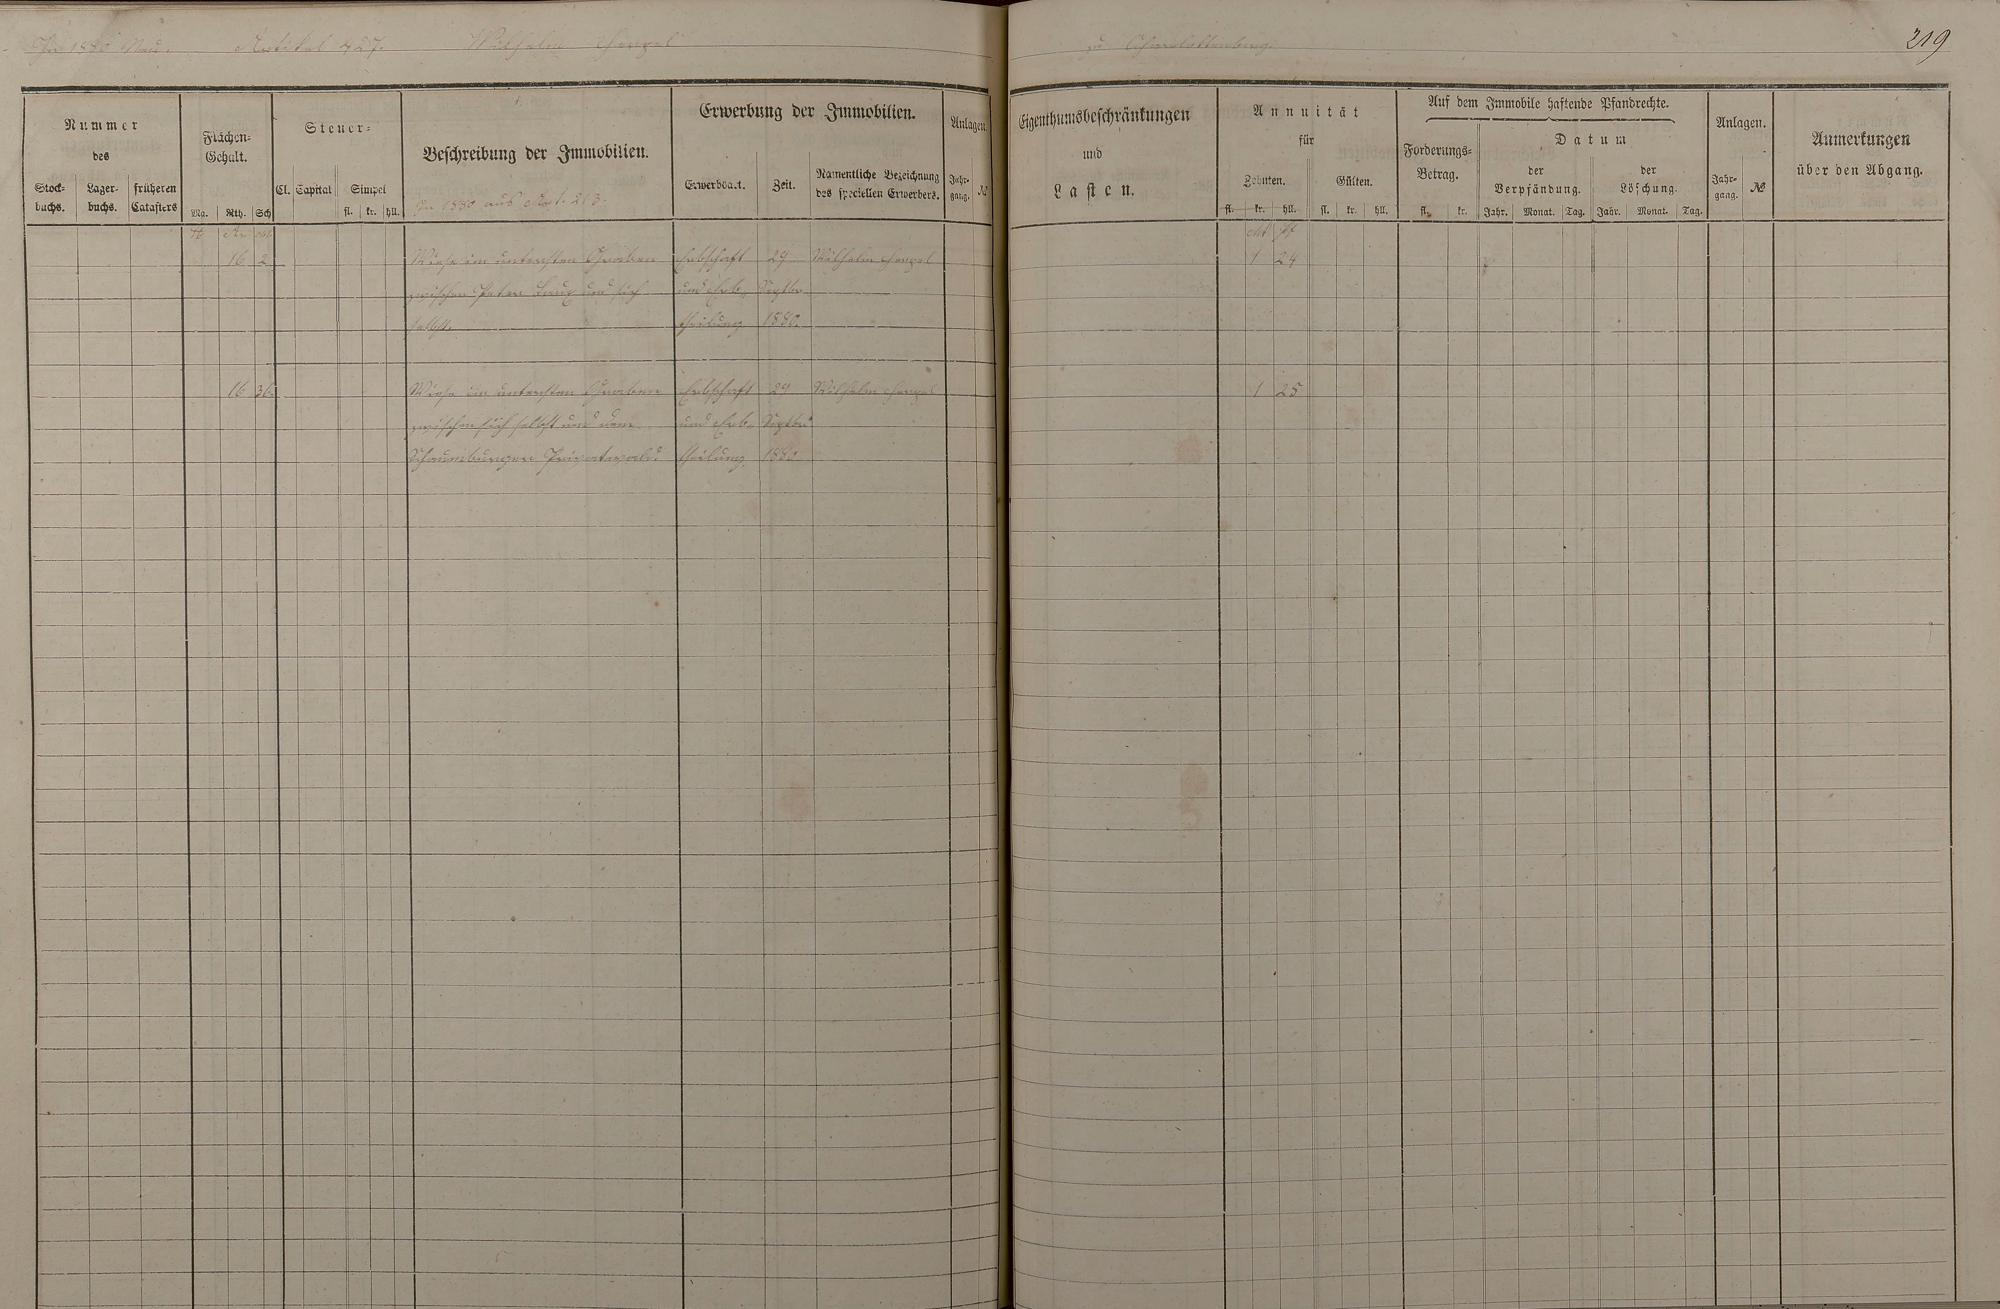 Pro 1880 Neu. Artikel 427. Wilhelm Henzel zu Charlottenberg. 219
Nummer
des
Stock-
buchs.
Lager-
buchs.
früheren
Catasters
Flächen-
Gehalt.
Mg. Rth. Sch
Steuer-
Cl. Capital Simpel
fl. kr. hll.
Beschreibung der Immobilien.
Pro 1880 aus Art. 213.
Erwerbung der Immobilien.
Erwerbsart. Zeit.
Namentliche Bezeichnung
des speciellen Erwerbers.
Anlagen.
Jahr-
gang. №
Eigenthumsbeschränkungen
und
Lasten.
Annuität
für
Zehnten. Gülten.
fl. kr. hll. fl. kr. hll.
Auf dem Immobile haftende Pfandrechte.
Forderungs-
Betrag.
fl. kr.
Datum
der
Verpfändung.
Jahr. Monat. Tag.
der
Löschung.
Jahr. Monat. Tag.
Anlagen.
Jahr-
gang. №
Anmerkungen
über den Abgang.
H Ar M Pf
16 2 Wiese im untersten Graben Erbschaft 29 Wilhelm Henzel 1 24
zwischen Peter Laux und sich und Erb- Septbr
selbst. theilung 1880.
16 36 Wiese im untersten Graben Erbschaft 29 Wilhelm Henzel 1 25
zwischen sich selbst und dem und Erb- Septbr
Schaumburger Privatwald theilung 1880